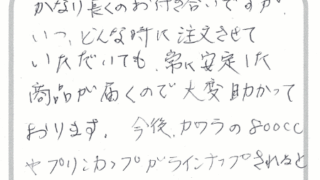 かなり長くのお付き合いですが、
いつ、どんな時に注文させて
いただいても、常に安定した
商品が届くので大変助かって
おります。今後、カワラの800cc
やプリンカップがラインナップされると